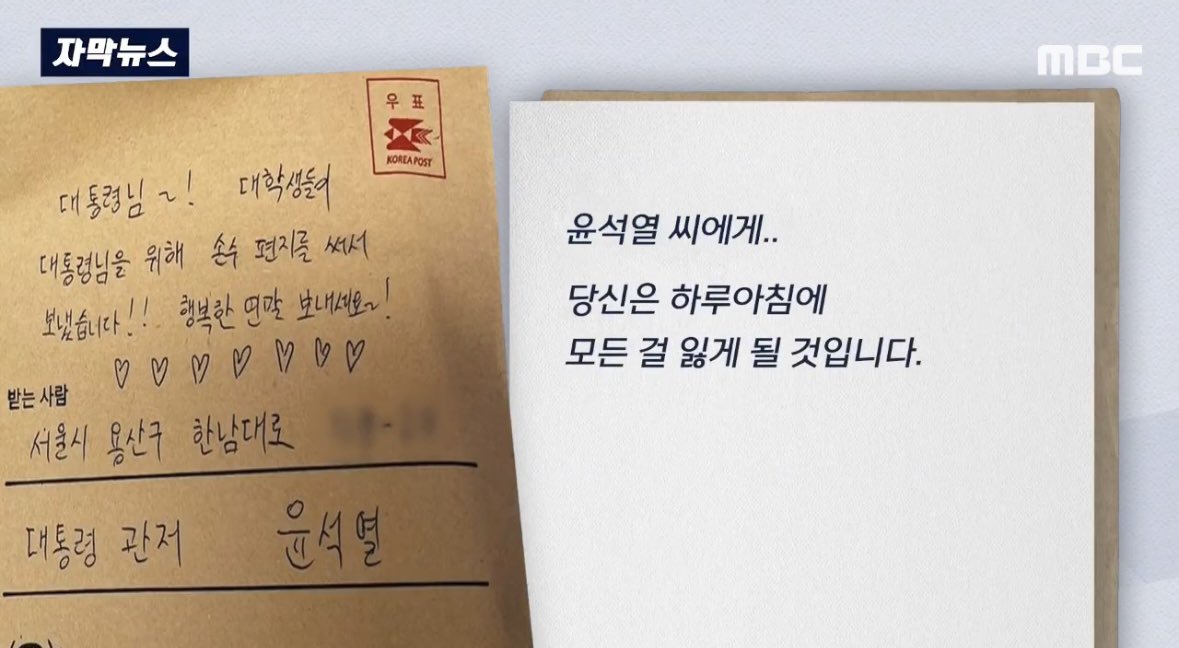 자막뉴스
MBC
우 표
KOREA POST
대통령님~! 대학생들이
대통령님을 위해 손수 편지를 써서
보냈습니다!! 행복한 연말 보내세요~!
♡ ♡ ♡ ♡ ♡ ♡ ♡
받는 사람
서울시 용산구 한남대로
대통령 관저 윤석열
윤석열 씨에게..
당신은 하루아침에
모든 걸 잃게 될 것입니다.